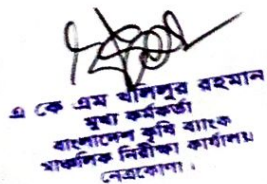 এ কে এম খলিলুর রহমান
মুখ্য কর্মকর্তা
বাংলাদেশ কৃষি ব্যাংক
আঞ্চলিক নিরীক্ষা কার্যালয়
নেত্রকোণা ।